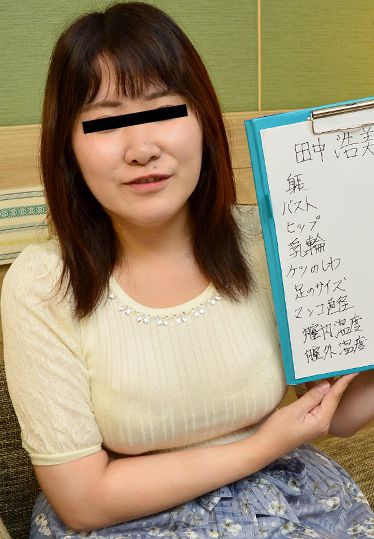 田中 浩美
躯
バスト
ヒップ
乳輪
ケツのしわ
足のサイズ
マンコ直径
膣内温度
膣外温度